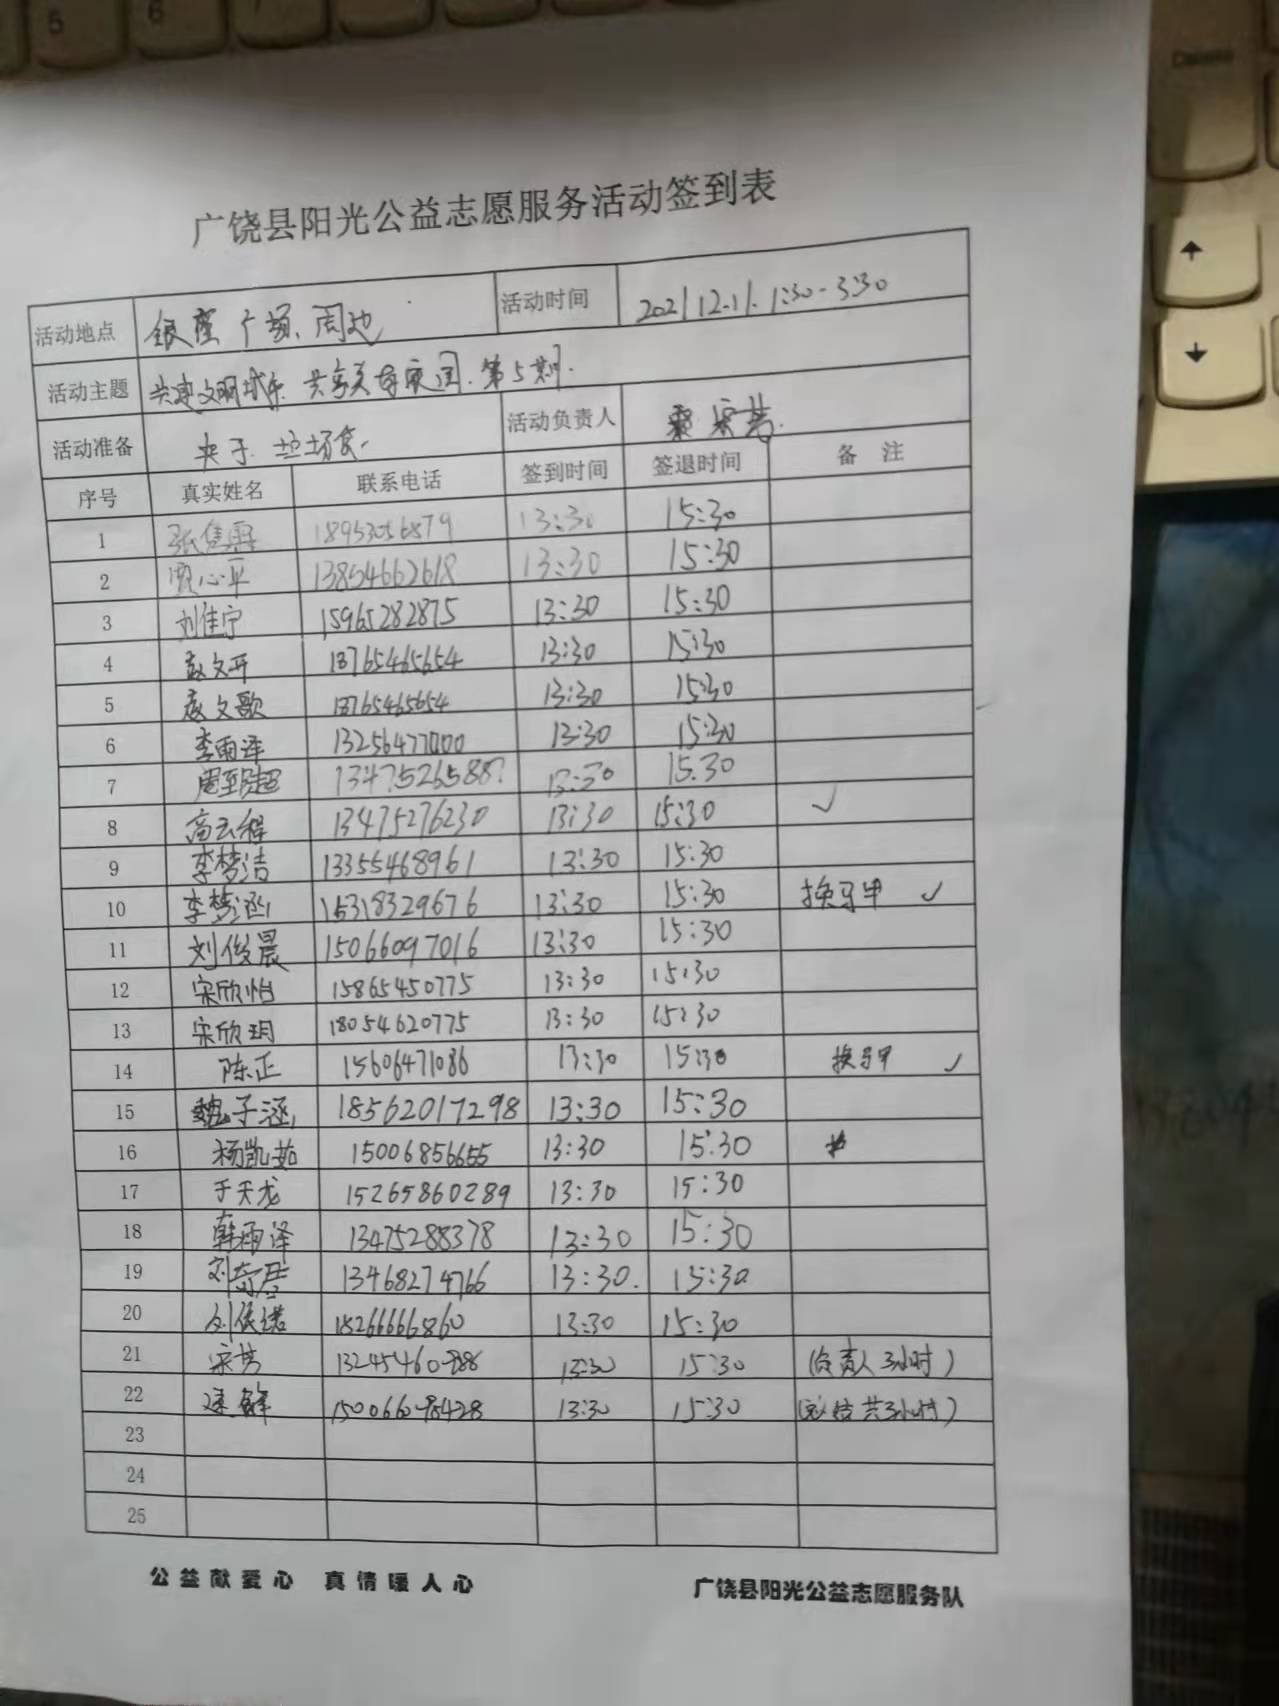 广饶县阳光公益志愿服务活动签到表
活动地点 银座广场、周边 活动时间 2021.12.11. 1:30-3:30
活动主题 共建文明城市 共享美好家园.第5期.
活动准备 夹子. 垃圾袋. 活动负责人
序号 真实姓名 联系电话 签到时间 签退时间 备注
1 18953056579 13:30 15:30
2 贾心平 13854662618 13:30 15:30
3 刘佳宁 15965282875 13:30 15:30
4 18765465654 13:30 15:30
5 18765465654 13:30 15:30
6 李雨泽 13256477000 13:30 15:30
7 13475265887 13:30 15.30
8 高云程 13475276230 13:30 15:30 ✓
9 李梦洁 13355468961 13:30 15:30
10 李梦涵 15318329676 13:30 15:30 换马甲 ✓
11 刘俊晨 15066097016 13:30 15:30
12 宋欣怡 15865450775 13:30 15:30
13 宋欣玥 18054620775 13:30 15:30
14 陈正 15606471086 13:30 15:30 换马甲 ✓
15 魏子涵 18562017298 13:30 15:30
16 杨凯茹 15006856655 13:30 15:30
17 于天龙 15265860289 13:30 15:30
18 韩雨泽 13475288378 13:30 15:30
19 刘奇居 13468274766 13:30. 15:30
20 刘依诺 15266666860 13:30 15:30
21 宋芳 13:30 15:30 (负责人3小时)
22 13:30 15:30 (总结共3小时)
23
24
25
公益献爱心 真情暖人心 广饶县阳光公益志愿服务队